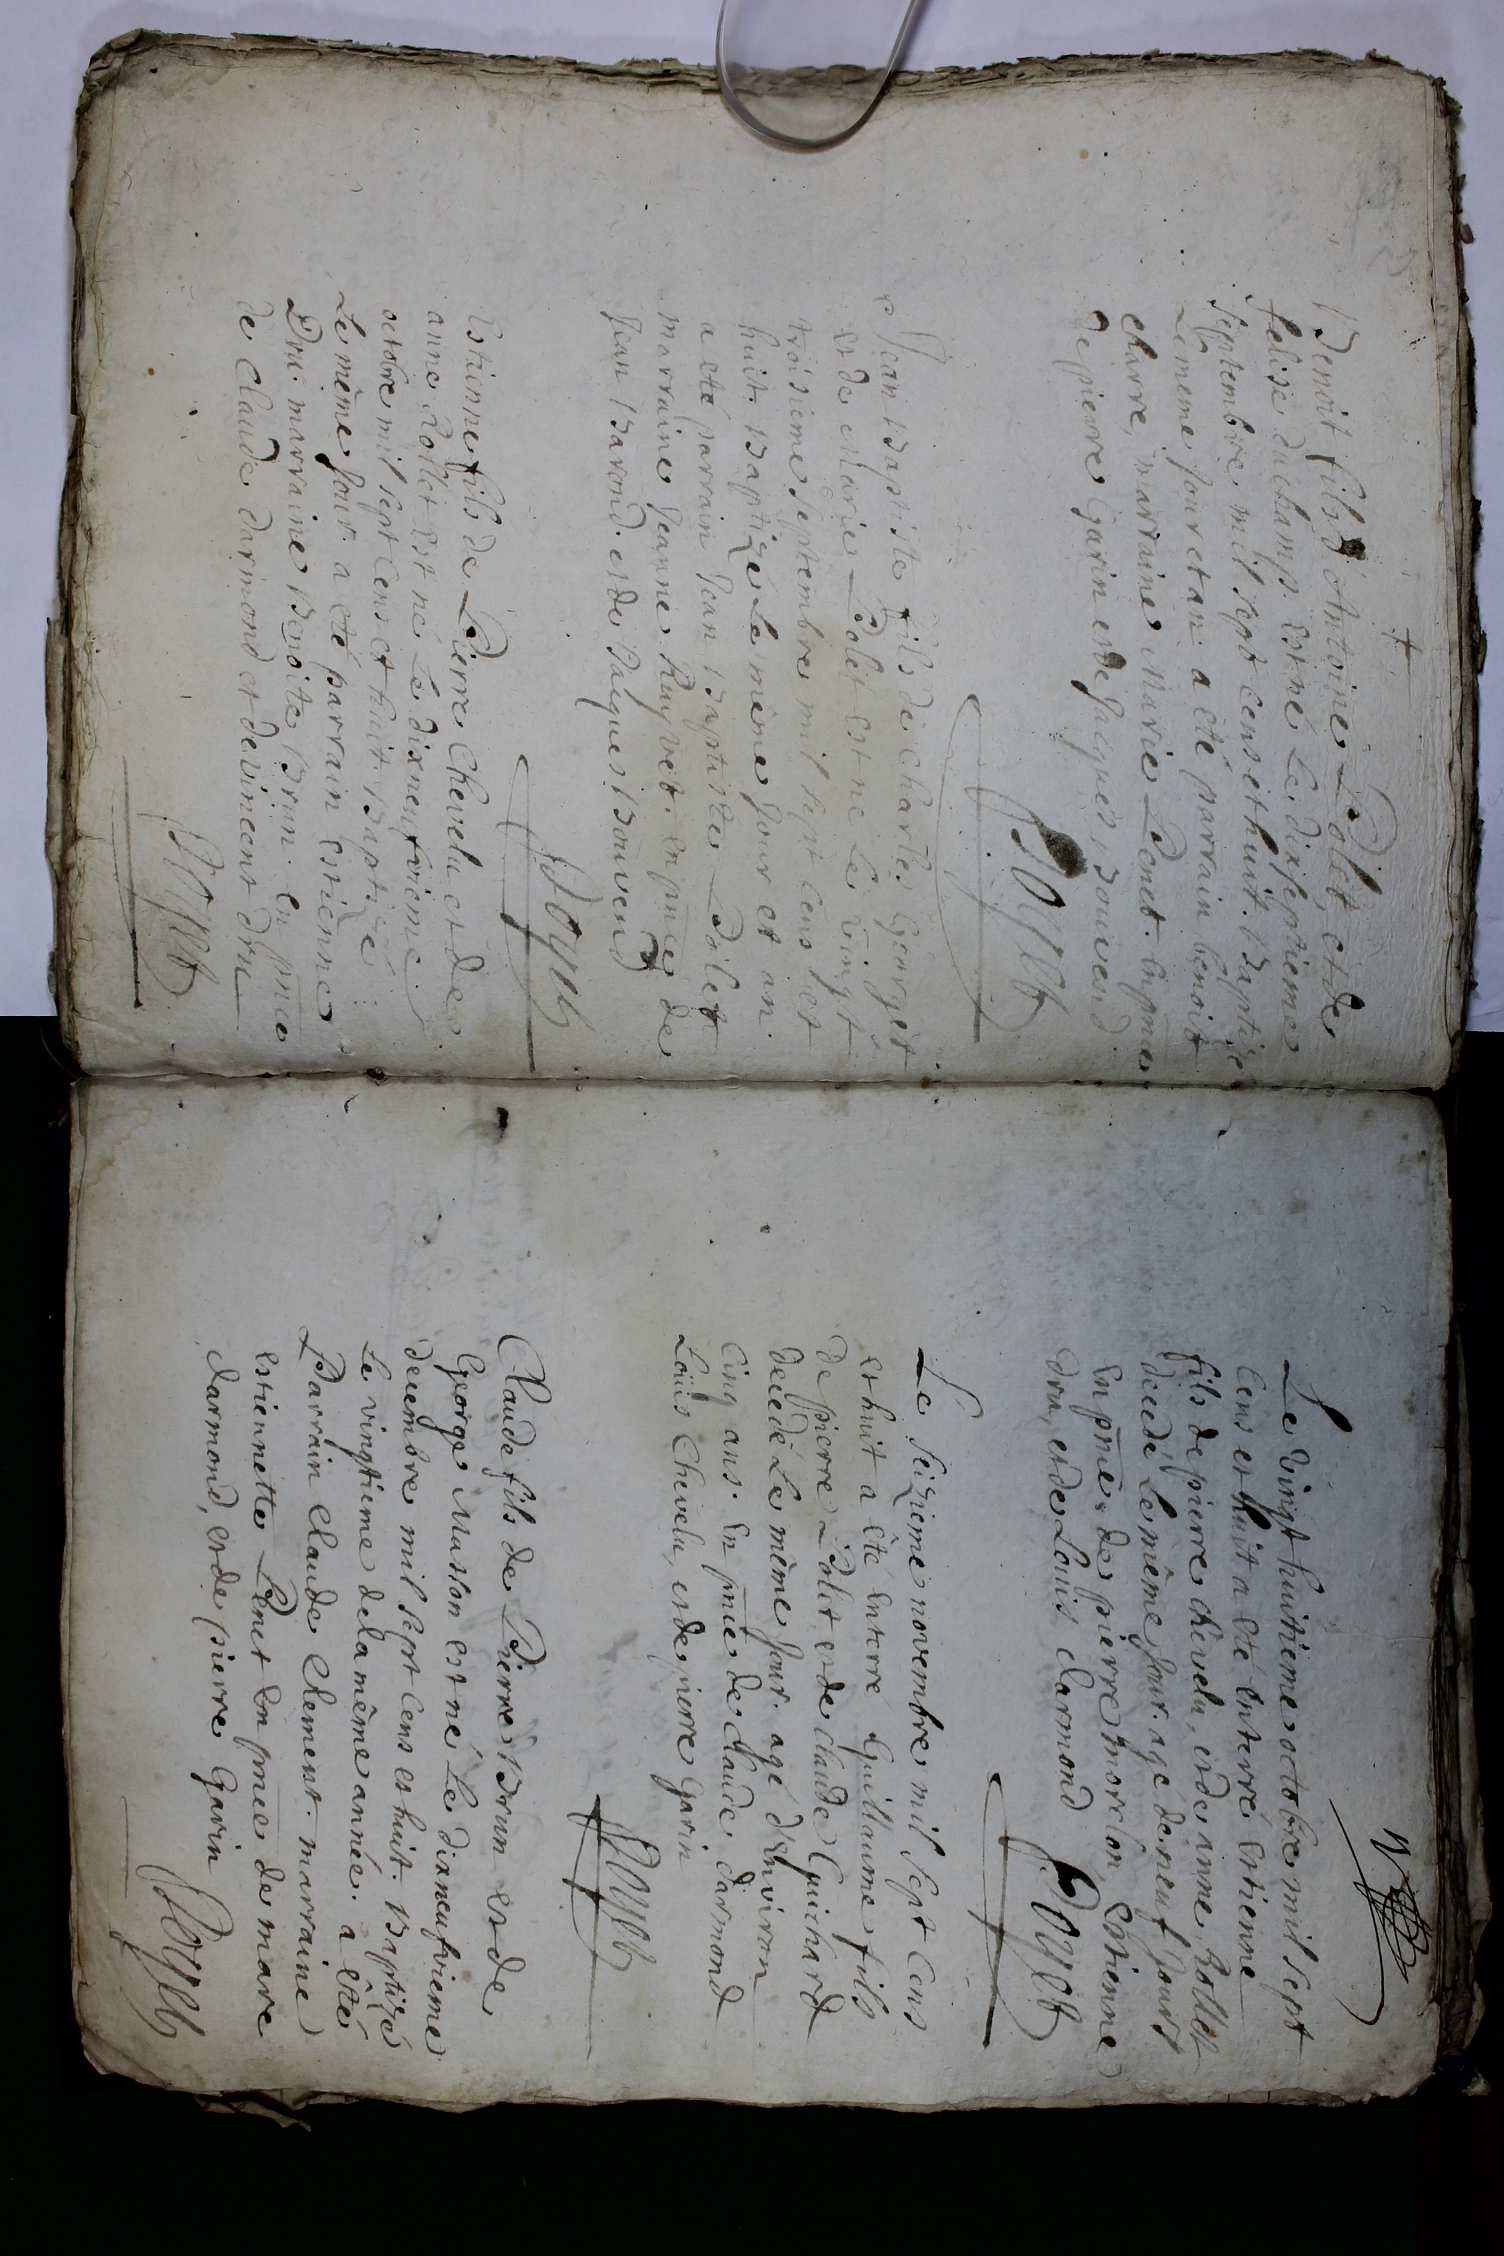 Benoit fils d'Antoine Polet, et de
felise duchamp est né Le dixseptieme
septembre mil sept cens et huit. baptise
Le meme jour et an. a eté parrain benoit
marraine Marie Penet. en pnce
de pierre Garin et de jacques bouvend
Jean baptiste fils de Charles Georget
et de Marie Polet est né Le vingt
troisieme septembre mil sept cens et
huit. baptizé Le même jour et an.
a eté parrain Jean baptiste Polet
marraine Jeanne en pnce de
Jean barond. et de Jaques bouvend
Estienne fils de Pierre Chevelu et de
anne Rollet est né Le dixneufvieme
octobre mil sept cens et huit. baptizé
Le même jour. a eté parrain estienne
Dru. marraine benoite brun. en pnce
de Claude darmond et de vincent dru
Le vingt huitieme octobre mil sept
Cens et huit a eté enterré estienne
fils de pierre chevelu, et de anne Rollet
decedé Le même jour. agé de neuf jours
en pnce de pierre morelon, estienne
dru, et de Louis darmond
Le seizieme novembre mil sept cens
et huit a eté enterré Guillaume fils
de pierre Polet, et de claude Guichard
decedé Le même jour. agé d'environ
Cinq ans. en pnce de Claude darmond
Loüis Chevelu, et de pierre Garin
Claude fils de Pierre brun et de
George Masson est né Le dixneufvieme
decembre mil sept cens et huit. baptizé
Le vingtieme de la même année. a êté
Parrain Claude Clement. marraine
estiennette Penet en pnce de marc
darmond, et de pierre Garin